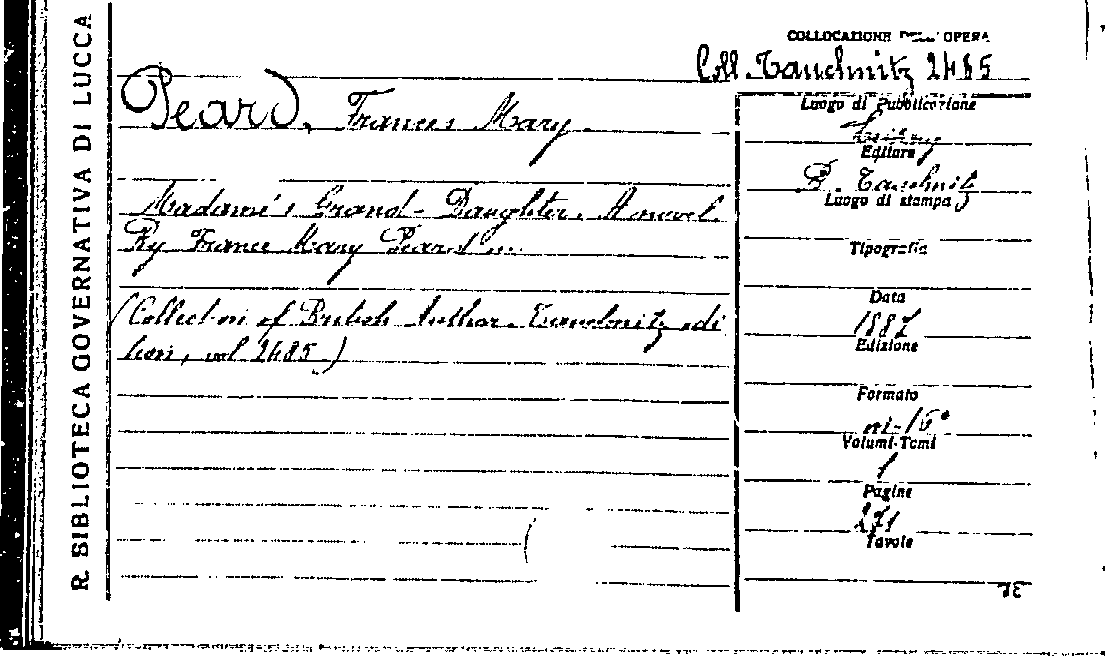 R. BIBLIOTECA GOVERNATIVA DI LUCCA
COLLOCAZIONE DELL'OPERA
Coll. Tauchnitz 2485
Peard, Frances Mary
Madame's Grand-Daughter. A novel.
By France Mary Peard
(Collection of British Author. Tauchnitz edi
tion, vol 2485)
Luogo di Pubblicazione
Editore
B. Tauchnitz
Luogo di stampa
Tipografia
Data
1887
Edizione
Formato
in-16°
Volumi-Tomi
1
Pagine
271
Tavole